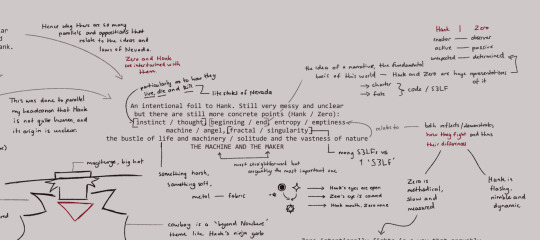 Hence why there are so many
parallels and oppositions that
relate to the ideas and
laws of Nevada.
Zero and Hank
are intertwined with
them.
ar
and
ank.
This was done to parallel
my headcanon that Hank
is not quite human, and
its origin is unclear.
particularly as to how they
live, die and kill
life states of Nevada
the idea of a narrative, the fundamental
basis of this world — Hank and Zero are huge representations
of it
Hank | Zero
— observer
active — passive
unexpected — determined
character
fate
code / S3LF
An intentional foil to Hank. Still very messy and unclear
but there are still more concrete points (Hank / Zero):
[instinct / thought, beginning / end, entropy / emptiness
machine / angel, [fractal / singularity]
the bustle of life and machinery / solitude and the vastness of nature
THE MACHINE AND THE MAKER
relates to
both
how they fight and thus
their differences
many S3LFs vs
1 'S3LF'
most straightforward but
originally the most important one
something harsh,
something soft.
metal — fabric
big hat
Hank's eyes are open
Zero's eye is covered
Hank mouth, Zero none
Zero is
methodical,
slow and
measured
Hank is
flashy,
nimble and
dynamic
cowboy is a 'beyond Nevada'
theme like Hank's ninja garb